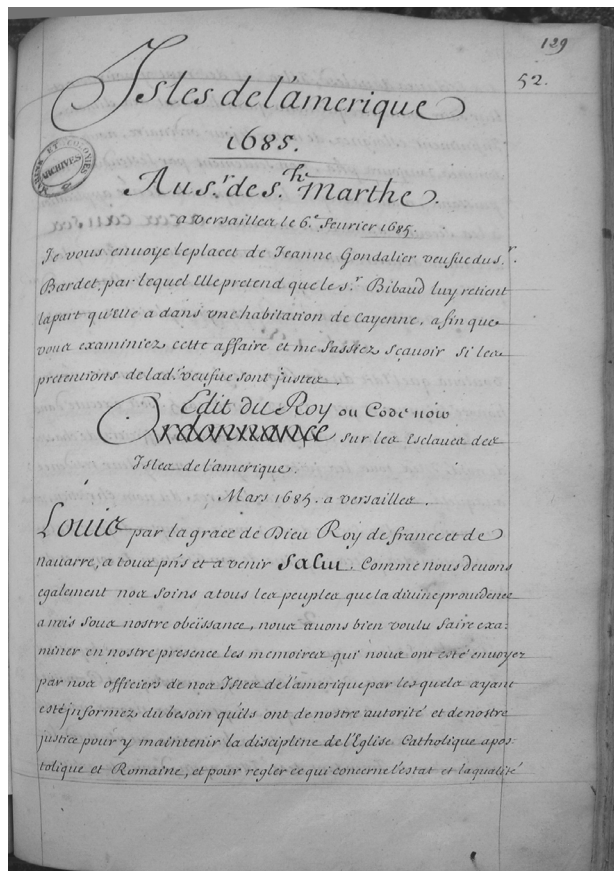 129
52.
Isles de l'amerique
1685.
Au s.r de s.te Marthe.
a versailles le 6.e feurier 1685.
Je vous enuoye le placet de Jeanne Gondalier veufue du s.r
Bardet, par lequel Elle pretend que le s.r Bibaud luy retient
la part qu'elle a dans vne habitation de Cayenne, afin que
vous examiniez cette affaire et me fassiez sçauoir si les
pretentions de lad.e veufue sont justes.
MARINE ET COLONIES
ARCHIVES
Edit du Roy ou Code noir
Ordonnance sur les Esclaues des
Isles de l'amerique.
Mars 1685. a versailles.
Louis par la grace de Dieu Roy de france et de
nauarre, a tous pñs et a venir Salut. Comme nous deuons
egalement nos soins a tous les peuples que la diuine prouidence
a mis sous nostre obeïssance, nous auons bien voulu faire exa-
miner en nostre presence les memoires qui nous ont esté enuoyez
par nos officiers de nos Isles de l'amerique par lesquels ayant
esté jnformez du besoin qu'ils ont de nostre autorité et de nostre
justice pour y maintenir la discipline de l'Eglise Catholique apos-
tolique et Romaine, et pour regler ce qui concerne l'estat et la qualité